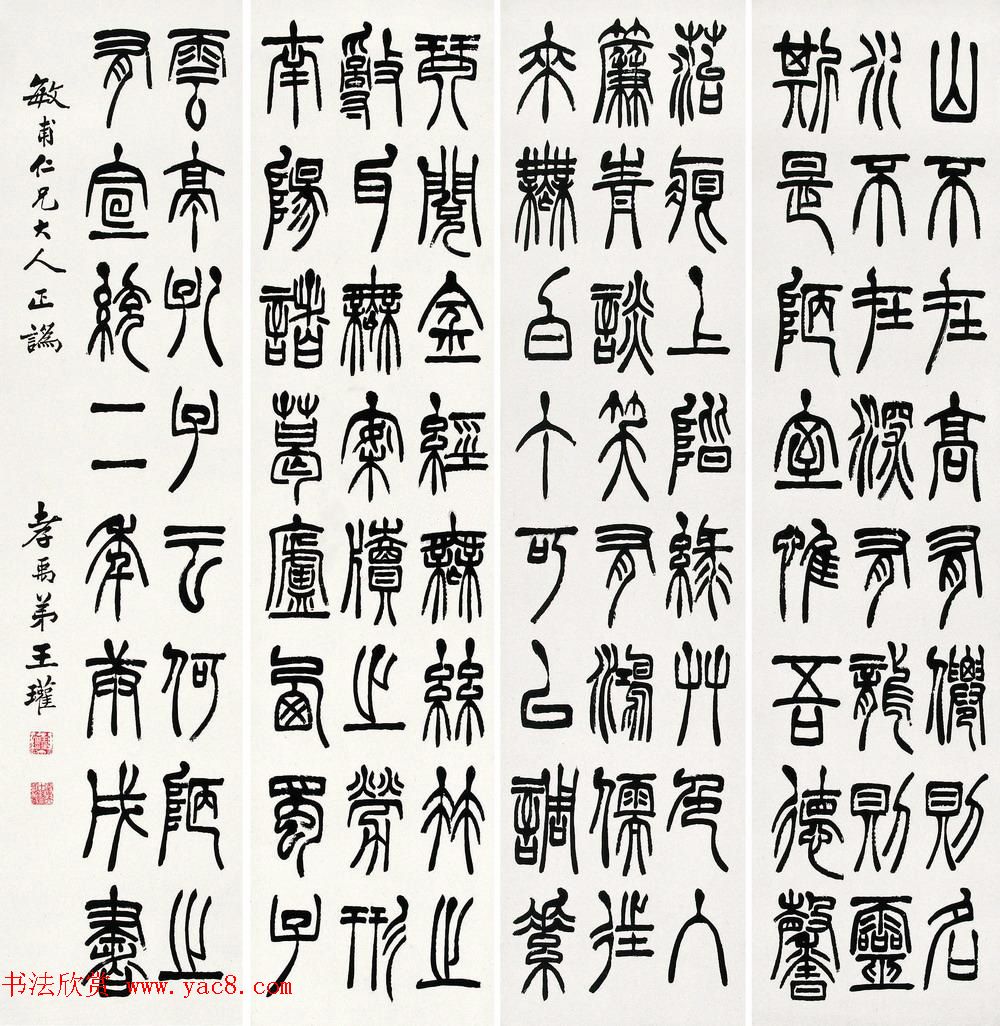 山不在高有僊則名
水不在深有龍則靈
斯是陋室惟吾德馨
菭痕上階緣艸色入
簾青談笑有鴻儒往
來無白丁可以調素
琴閱金經無絲竹之
亂耳無案牘之勞形
南陽諸葛廬西蜀子
雲亭孔子云何陋之
有宣統二年庚戌書
敏甫仁兄大人正譌 孝禹弟王瓘
书法欣赏 www.yac8.com